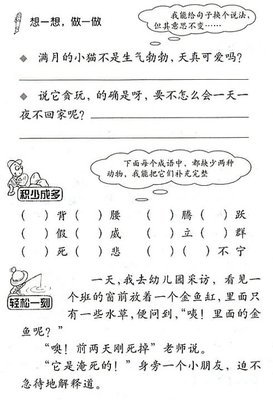 想一想，做一做
我能给句子换个说法，
但其意思不变……
满月的小猫不是生气勃勃，天真可爱吗？
说它贪玩，的确是呀，要不怎么会一天一
夜不回家呢？
下面每个成语中，都缺少两种
动物，我能把它们补充完整
积少成多
（ ）背（ ）腰 （ ）腾（ ）跃
（ ）假（ ）威 （ ）立（ ）群
（ ）死（ ）悲 （ ）（ ）不宁
轻松一刻
一天，我去幼儿园采访，看见一
个班的窗前放着一个金鱼缸，里面只
有一些水草，便问到，“咦！里面的金
鱼呢？”
“噢！前两天刚死掉”老师说。
“它是淹死的！”身旁一个小朋友，迫不
急待地解释道。